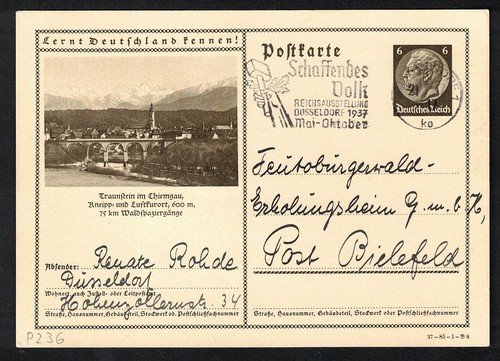 Lernt Deutschland kennen!
Traunstein im Chiemgau,
Kneipp- und Luftkurort, 600 m,
75 km Waldspaziergänge
Absender: Renate Rohde
Düsseldorf
Wohnort, auch Zustell- oder Leitpostamt
Hohenzollernstr. 34
Straße, Hausnummer, Gebäudeteil, Stockwerk od. Postschließfachnummer
P236
Postkarte
Schaffendes
Volk
REICHSAUSSTELLUNG
DÜSSELDORF 1937
Mai-Oktober
6 6
Deutsches Reich
21
ko
Teutoburgerwald-
Erholungsheim G.m.b.H,
Post Bielefeld
Straße, Hausnummer, Gebäudeteil, Stockwerk oder Postschließfachnummer
37-85-1-B8